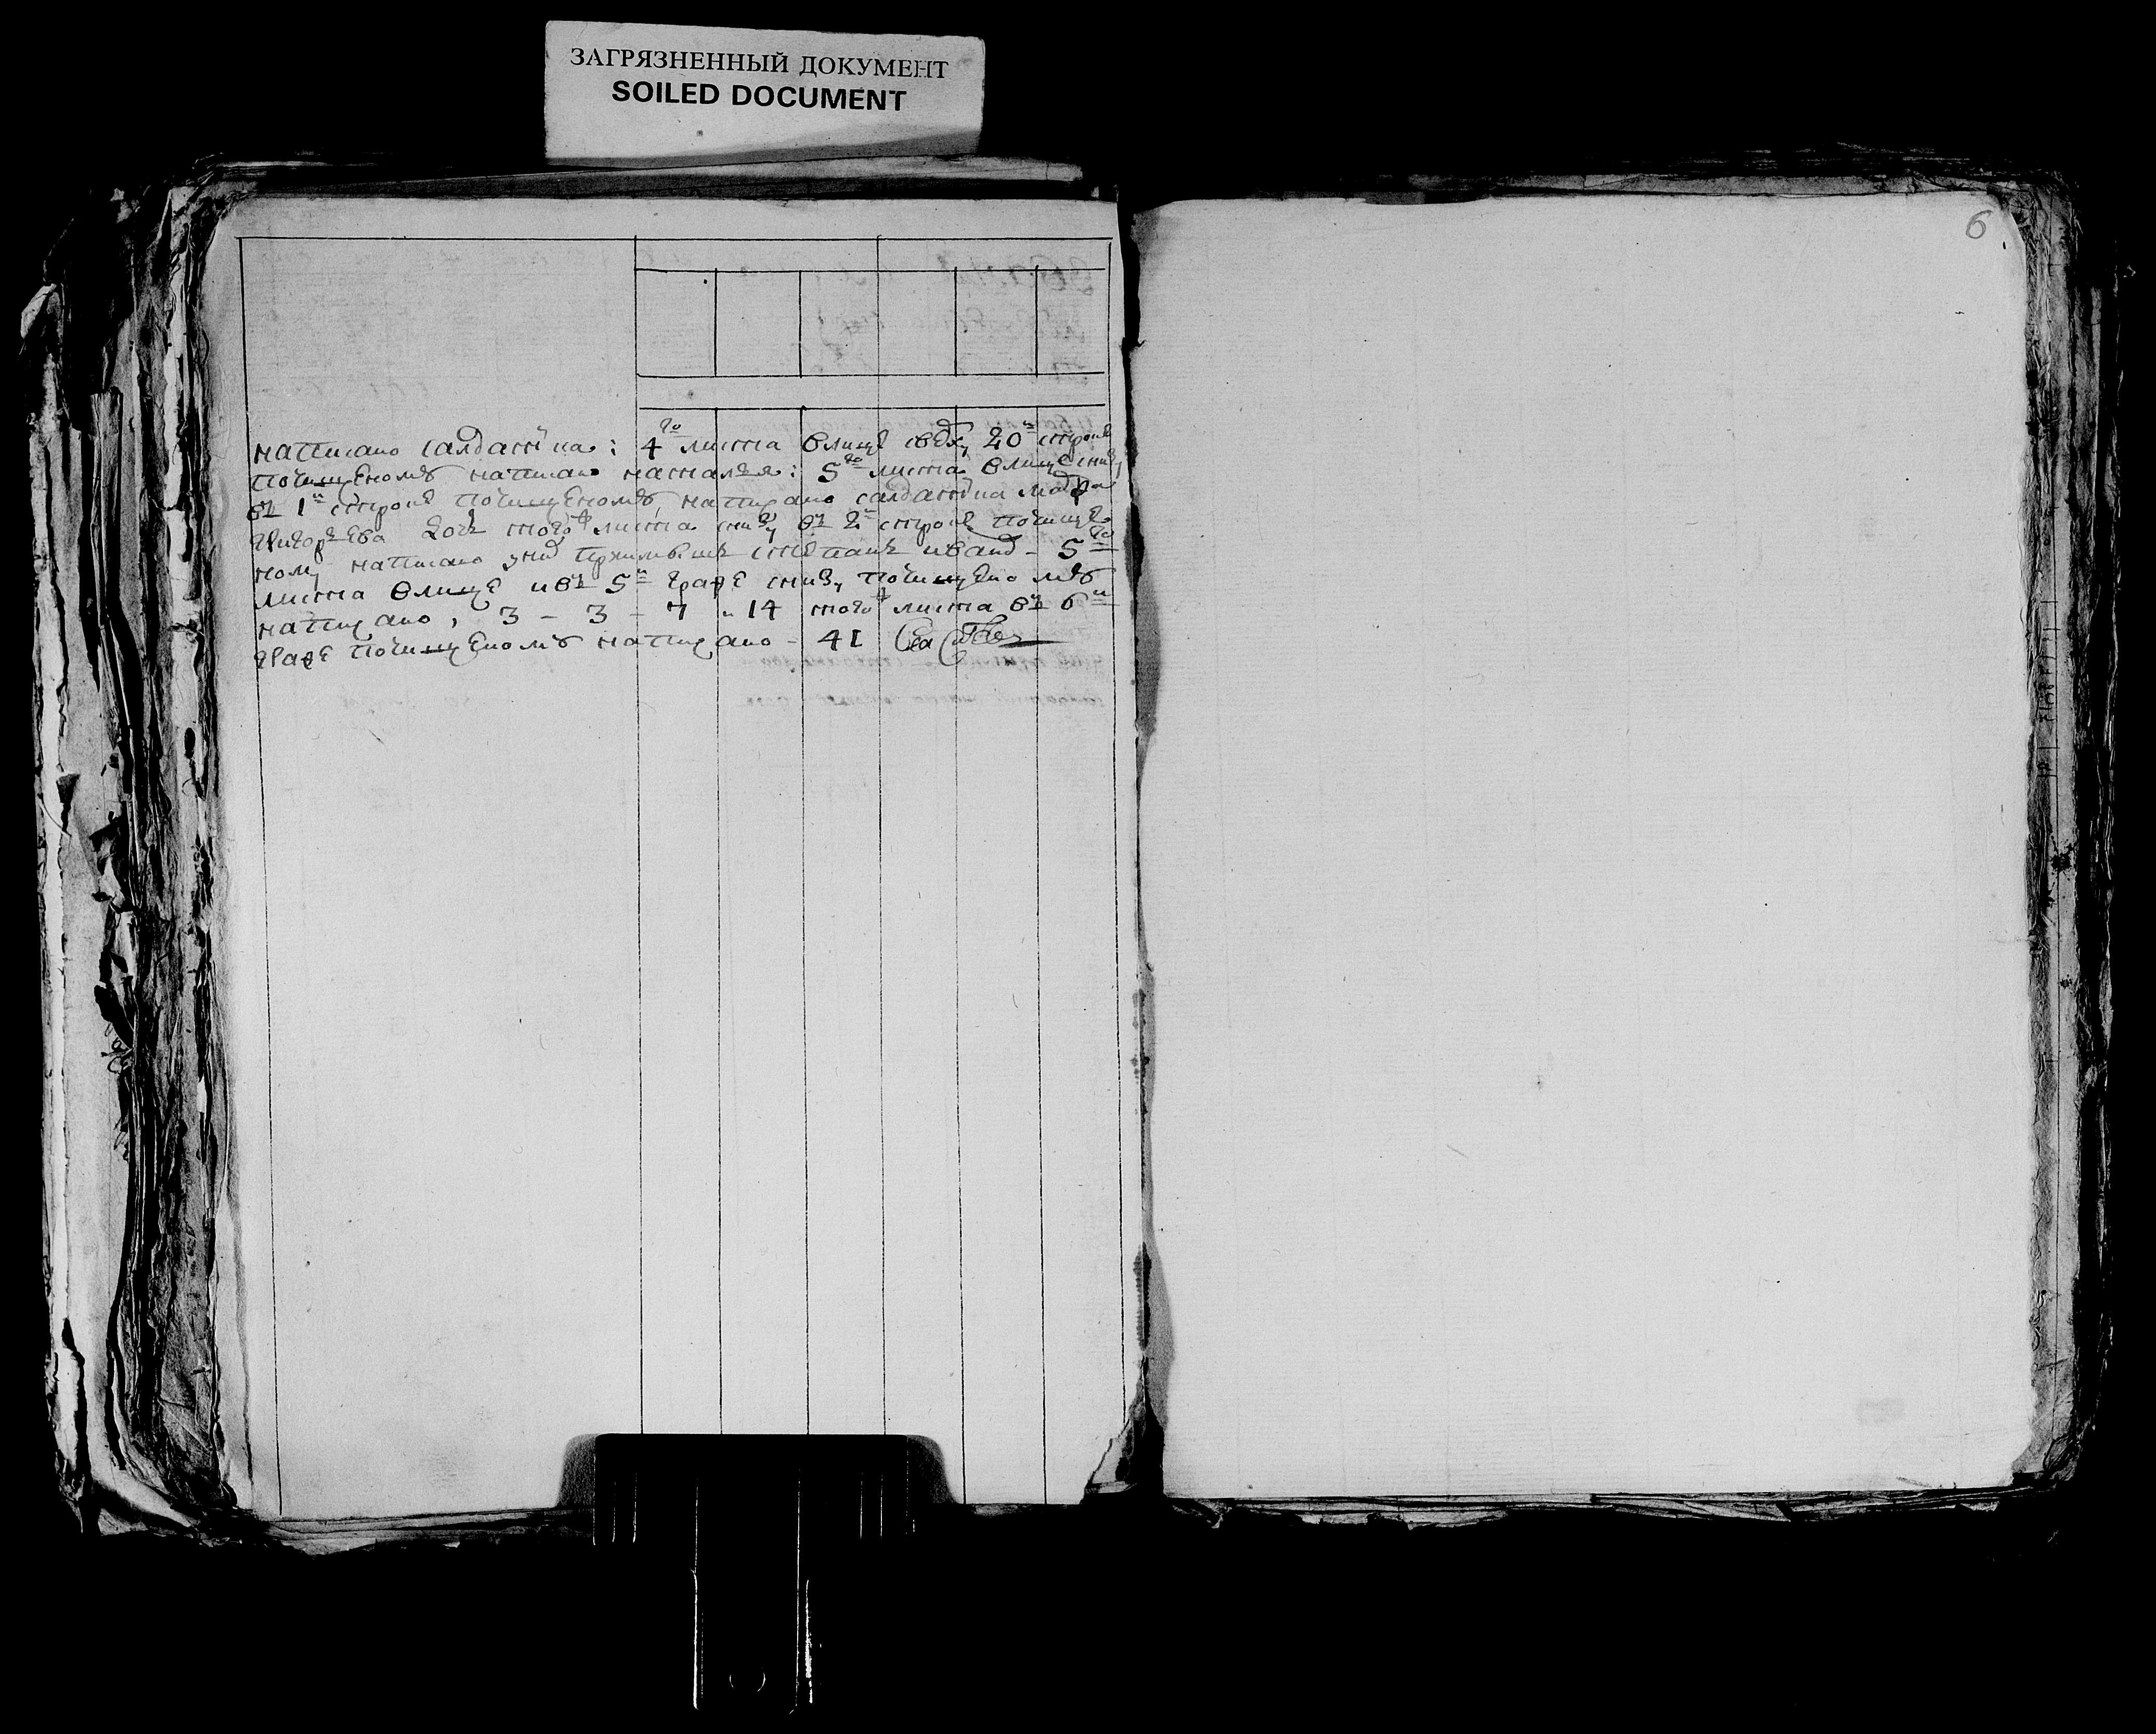 ЗАГРЯЗНЕННЫЙ ДОКУМЕНТ
SOILED DOCUMENT
6
написано салдатка: 4го листа влице сверху 20й строке
почищеномъ написано насталья: 5го листа влице снизу
въ 1й строке почищеномъ, написано салдатка Мавра
Григорьева дочь того ж листа снизу въ 2й строке почище
ному написано у ней прижитыи Степанъ иванъ - 5го
листа влице ивъ 5й графе снизу почищено мъ
написано, 3 - 3 - 7 и 14 того ж листа въ 6й
графе почищеномъ написано - 41